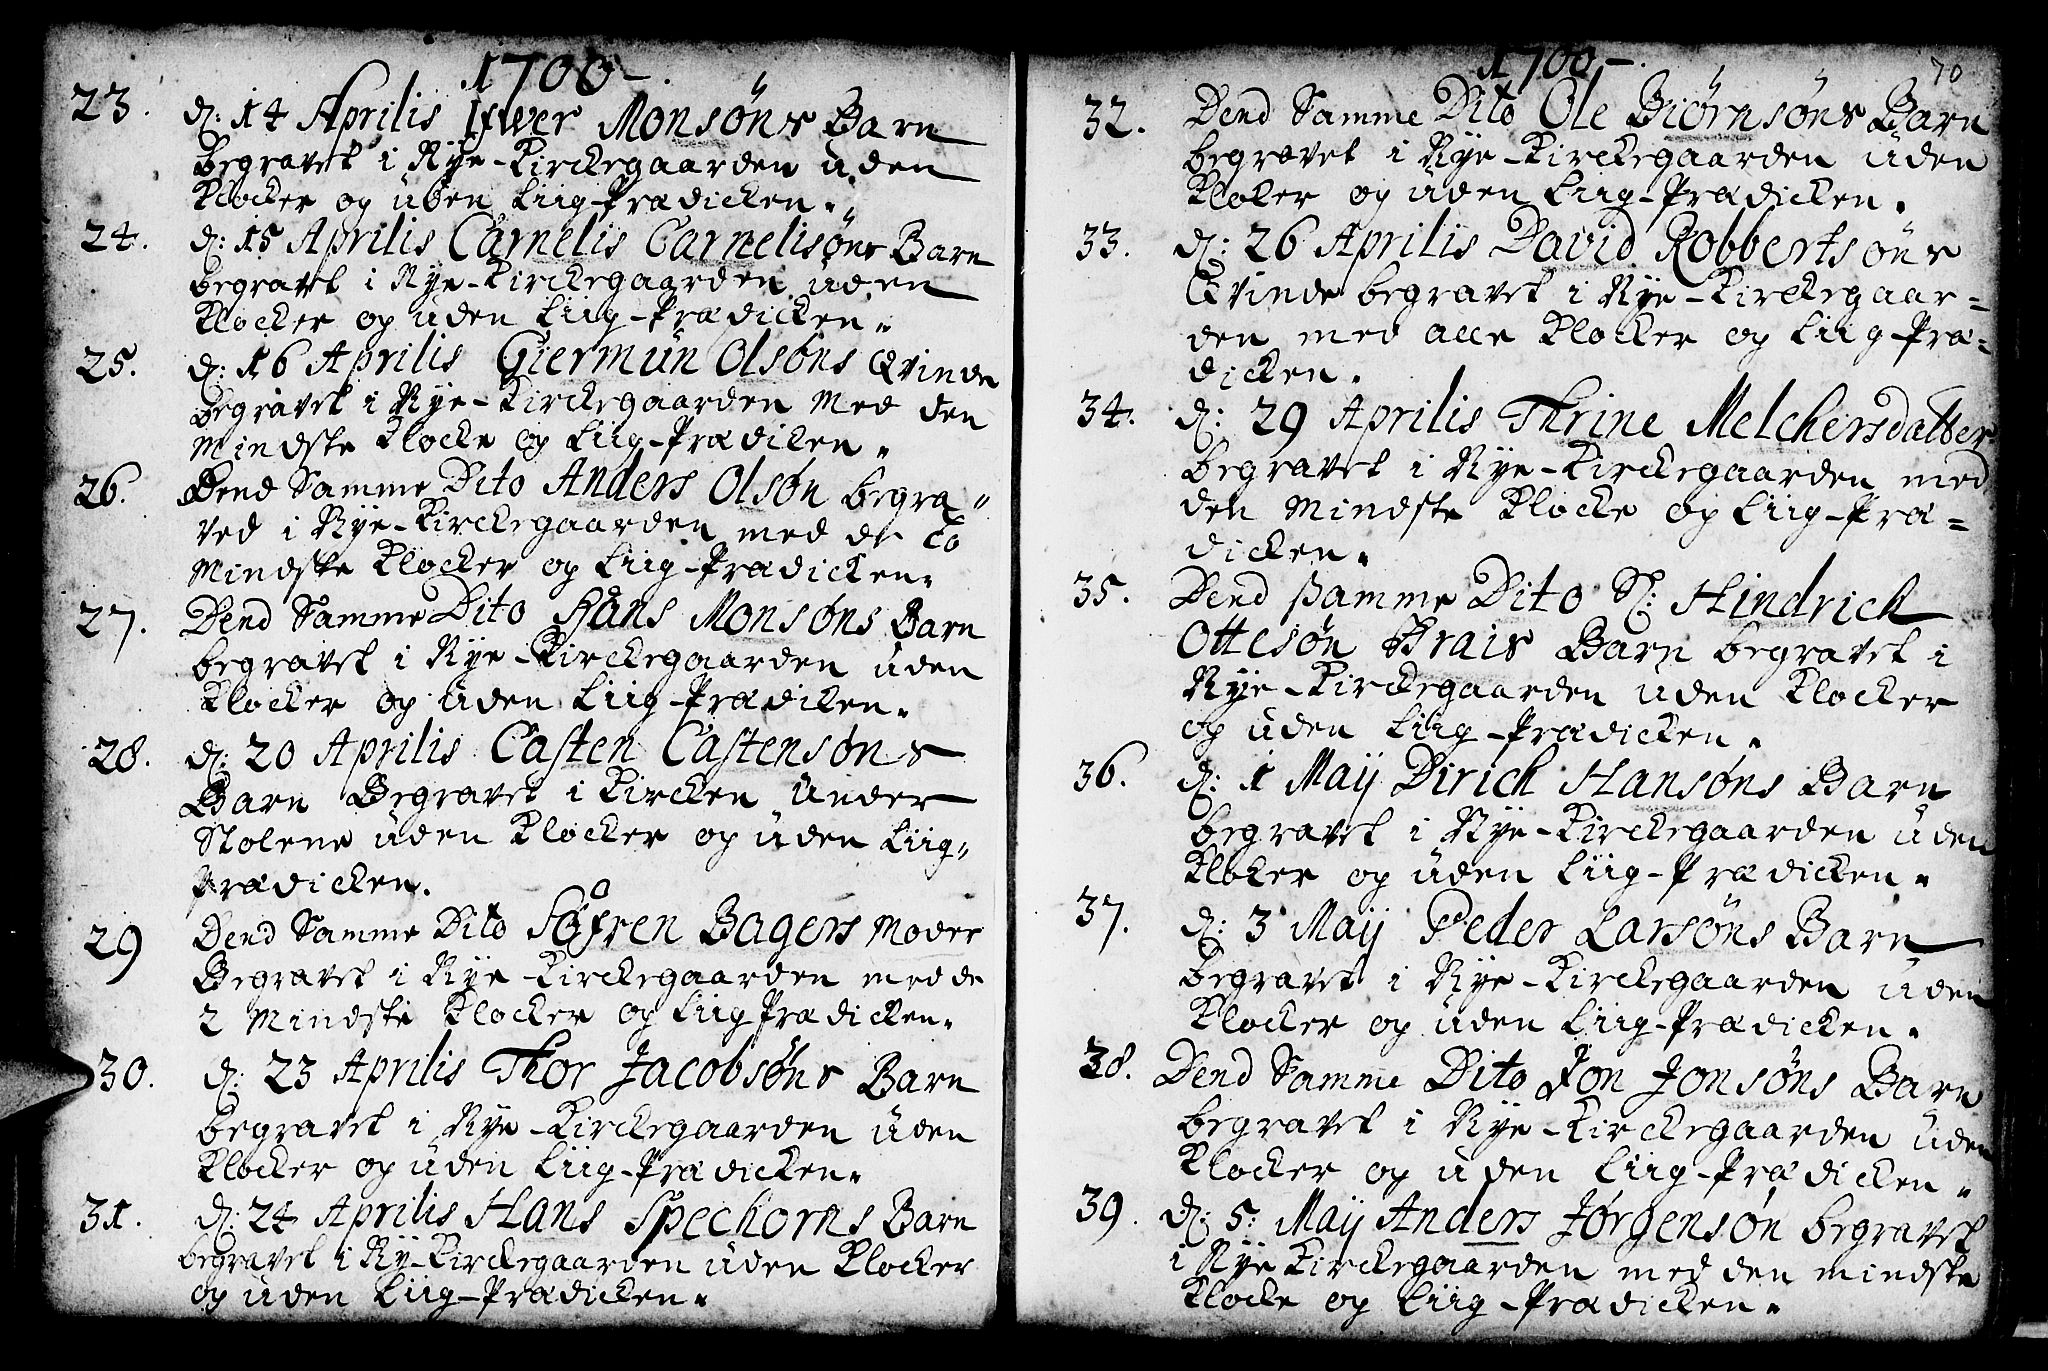 1700.
23. d: 14 Aprilis Ifwer Monsøns Barn
begravet i Nye-Kirckegaarden uden
Klocker og uden Liig-Prædicken.
24. d: 15 Aprilis Carnelis Carnelisøns Barn
begravet i Nye-Kirckegaarden uden
Klocker og uden Liig-Prædicken.
25. d: 16 Aprilis Giermun Olsøns Qvinde
begravet i Nye-Kirckegaarden Med den
Mindste Klocke og Liig-Prædiken.
26. Dend Samme Dito Anders Olsøn begra-
ved i Nye-Kirckegaarden med de to
Mindste Klocker og Liig-Prædicken.
27. Dend Samme Dito Hans Monsøns Barn
begravet i Nye-Kirckegaarden uden
Klocker og uden Liig-Prædiken.
28. d: 20 Aprilis Casten Castensøns
Barn Begravet i Kircken under
Stolene uden Klocker og uden Liig-
Prædicken.
29 Dend Samme Dito Søfren Bagers Moder
Begravet i Nye-Kirckegaarden med de
2 Mindste Klocker og Liig Prædicken.
30. d: 23 Aprilis Thor Jacobsøns Barn
begravet i Nye-Kirckegaarden uden
Klocker og uden Liig-Prædicken.
31. d: 24 Aprilis Hans Spechorns Barn
begravet i Ny-Kirckegaarden uden Klocker
og uden Liig-Prædicken.
1700.
70
32. Dend Samme Dito Ole Biørnsøns Barn
begravet i Nye-Kirckegaarden uden
Kloker og uden Liig-Prædicken.
33. d: 26 Aprilis David Robbertsøns
Qvinde begravet i Nye-Kirckegaar=
den med alle Klocker og Liig-Præ=
dicken.
34. d: 29 Aprilis Thrine Melchersdatter
begravet i Nye-Kirckegaarden med
den Mindste Klocke og Liig-Præ=
dicken.
35. Dend samme Dito S: Hindrich
Ottesøn Brais Barn begravet i
Nye-Kirckegaarden uden Klocker
og uden Liig-Prædicken.
36. d: 1 Maij Dirich Hansøns Barn
begravet i Nye-Kirckegaarden uden
Kloker og uden Liig-Prædicken.
37. d: 3 Maij Peder Larsøns Barn
begravet i Nye-Kirckegaarden uden
Klocker og uden Liig-Prædicken.
38. Dend Samme Dito Jon Jonsøns Barn
begravet i Nye-Kirckegaarden uden
Klocker og uden Liig-Prædicken.
39. d: 5: Maij Anders Jørgensøn begravet
i Nye Kirckegaarden med den mindste
Klocke og Liig-Prædicken.